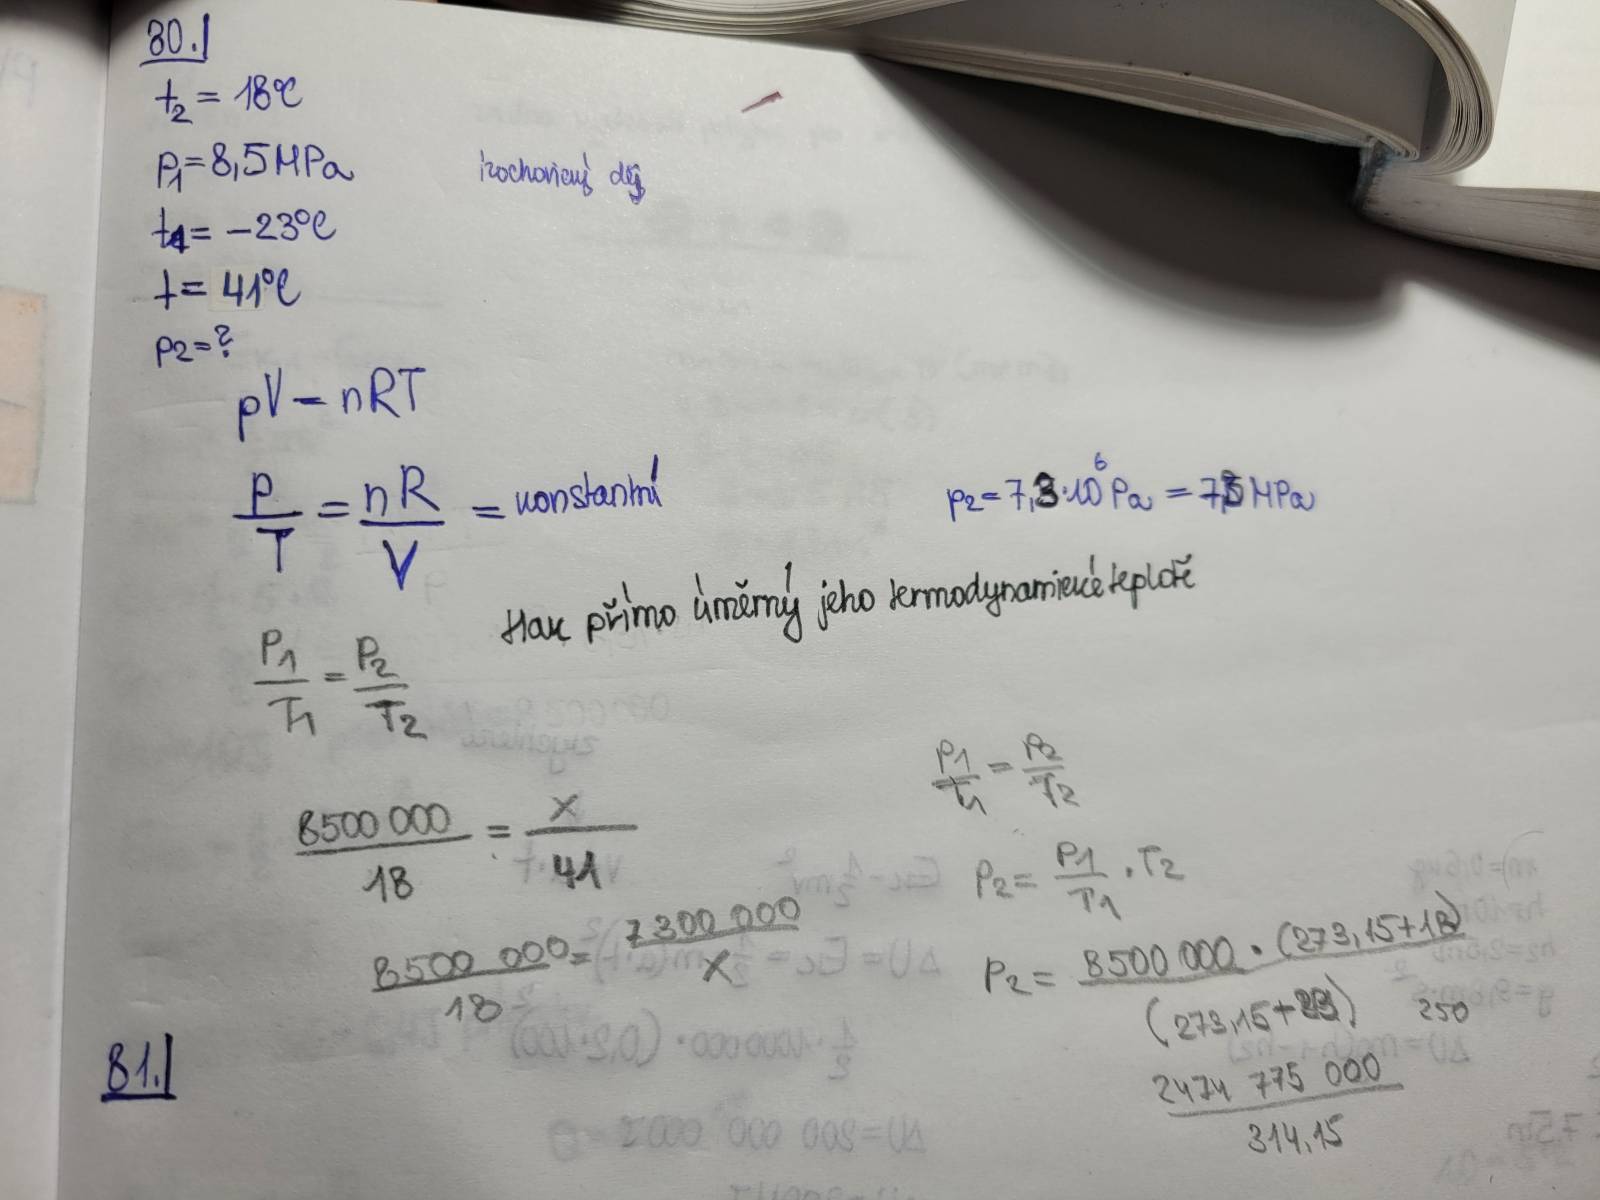 80.
t₂ = 18°C
p₁ = 8,5 MPa
izochorický děj
t₁ = -23°C
t = 41°C
p₂ = ?
pV = nRT
p/T = nR/V = konstantní
p₂ = 7,3·10⁶ Pa = 7,3 MPa
tlak přímo úměrný jeho termodynamické teplotě
P₁/T₁ = P₂/T₂
8500 000/18 = x/41
8500 000/18 = 7300 000/x
P₁/T₁ = P₂/T₂
P₂ = P₁/T₁ · T₂
P₂ = 8500 000 · (273,15+18)/(273,15+23) 250
2474 775 000/314,15
81.